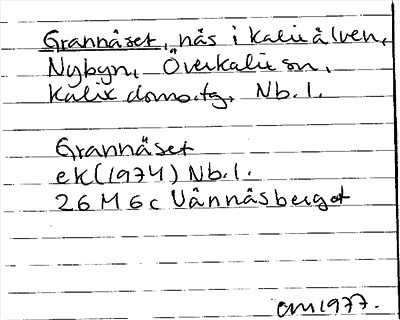 Grannäset, näs i Kalixälven,
Nybyn, Överkalix sn,
Kalix doms.tg, Nb.l.
Grannäset
ek(1974) Nb.l.
26 M 6c Vännäsberget
OM 1977.